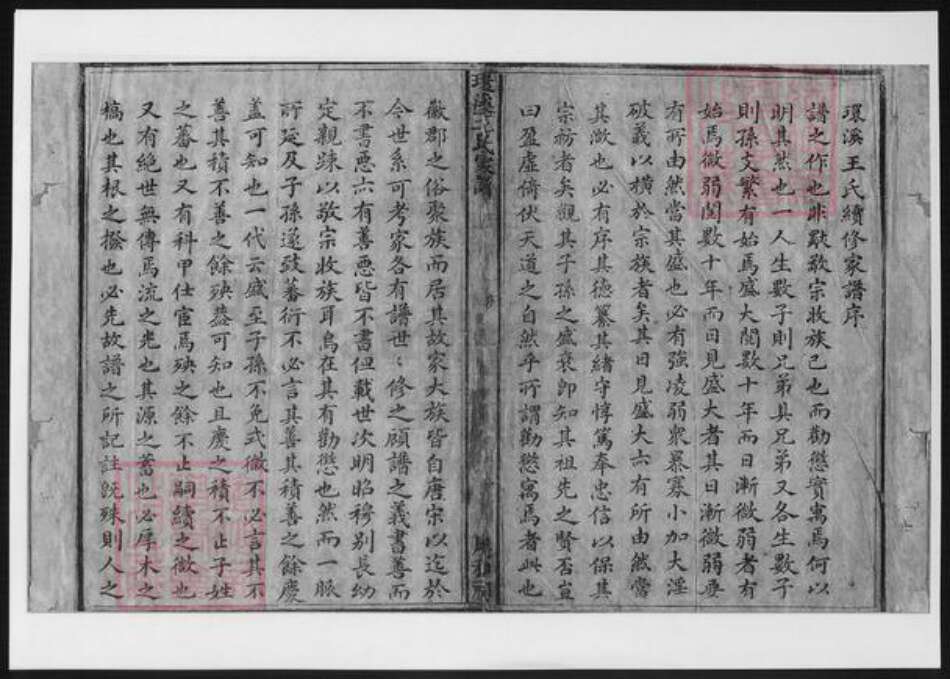 環溪王氏續修家譜序
譜之作也非獨敬宗收族已也而勸懲實寓焉何以
明其然也一人生數子則兄弟具兄弟又各生數子
則孫支繁有始焉盛大閱數十年而日漸微弱者有
始焉微弱閱數十年而日見盛大者其日漸微弱要
有所由然當其盛也必有強凌弱衆暴寡小加大淫
破義以橫於宗族者矣其日見盛大亦有所由然當
其微也必有序其德纂其緒守惇篤奉忠信以保其
宗祊者矣觀其子孫之盛衰即知其祖先之賢否豈
曰盈虛倚伏天道之自然乎所謂勸懲寓焉者此也
環溪王氏家譜
序
徽郡之俗聚族而居其故家大族皆自唐宋以迄於
今世系可考家各有譜世〻修之顧譜之義書善而
不書惡亦有善惡皆不書但載世次明昭穆别長幼
定親疎以敬宗收族耳烏在其有勸懲也然而一脈
所延及子孫遂致蕃衍不必言其善其積善之餘慶
蓋可知也一代云盛至子孫不免式微不必言其不
善其積不善之餘殃蓋可知也且慶之積不止子姓
之蕃也又有科甲仕宦焉殃之餘不止嗣續之微也
又有絶世無傳焉流之光也其源之蓄也必厚木之
槁也其根之撥也必先故譜之所記註既殊則人之